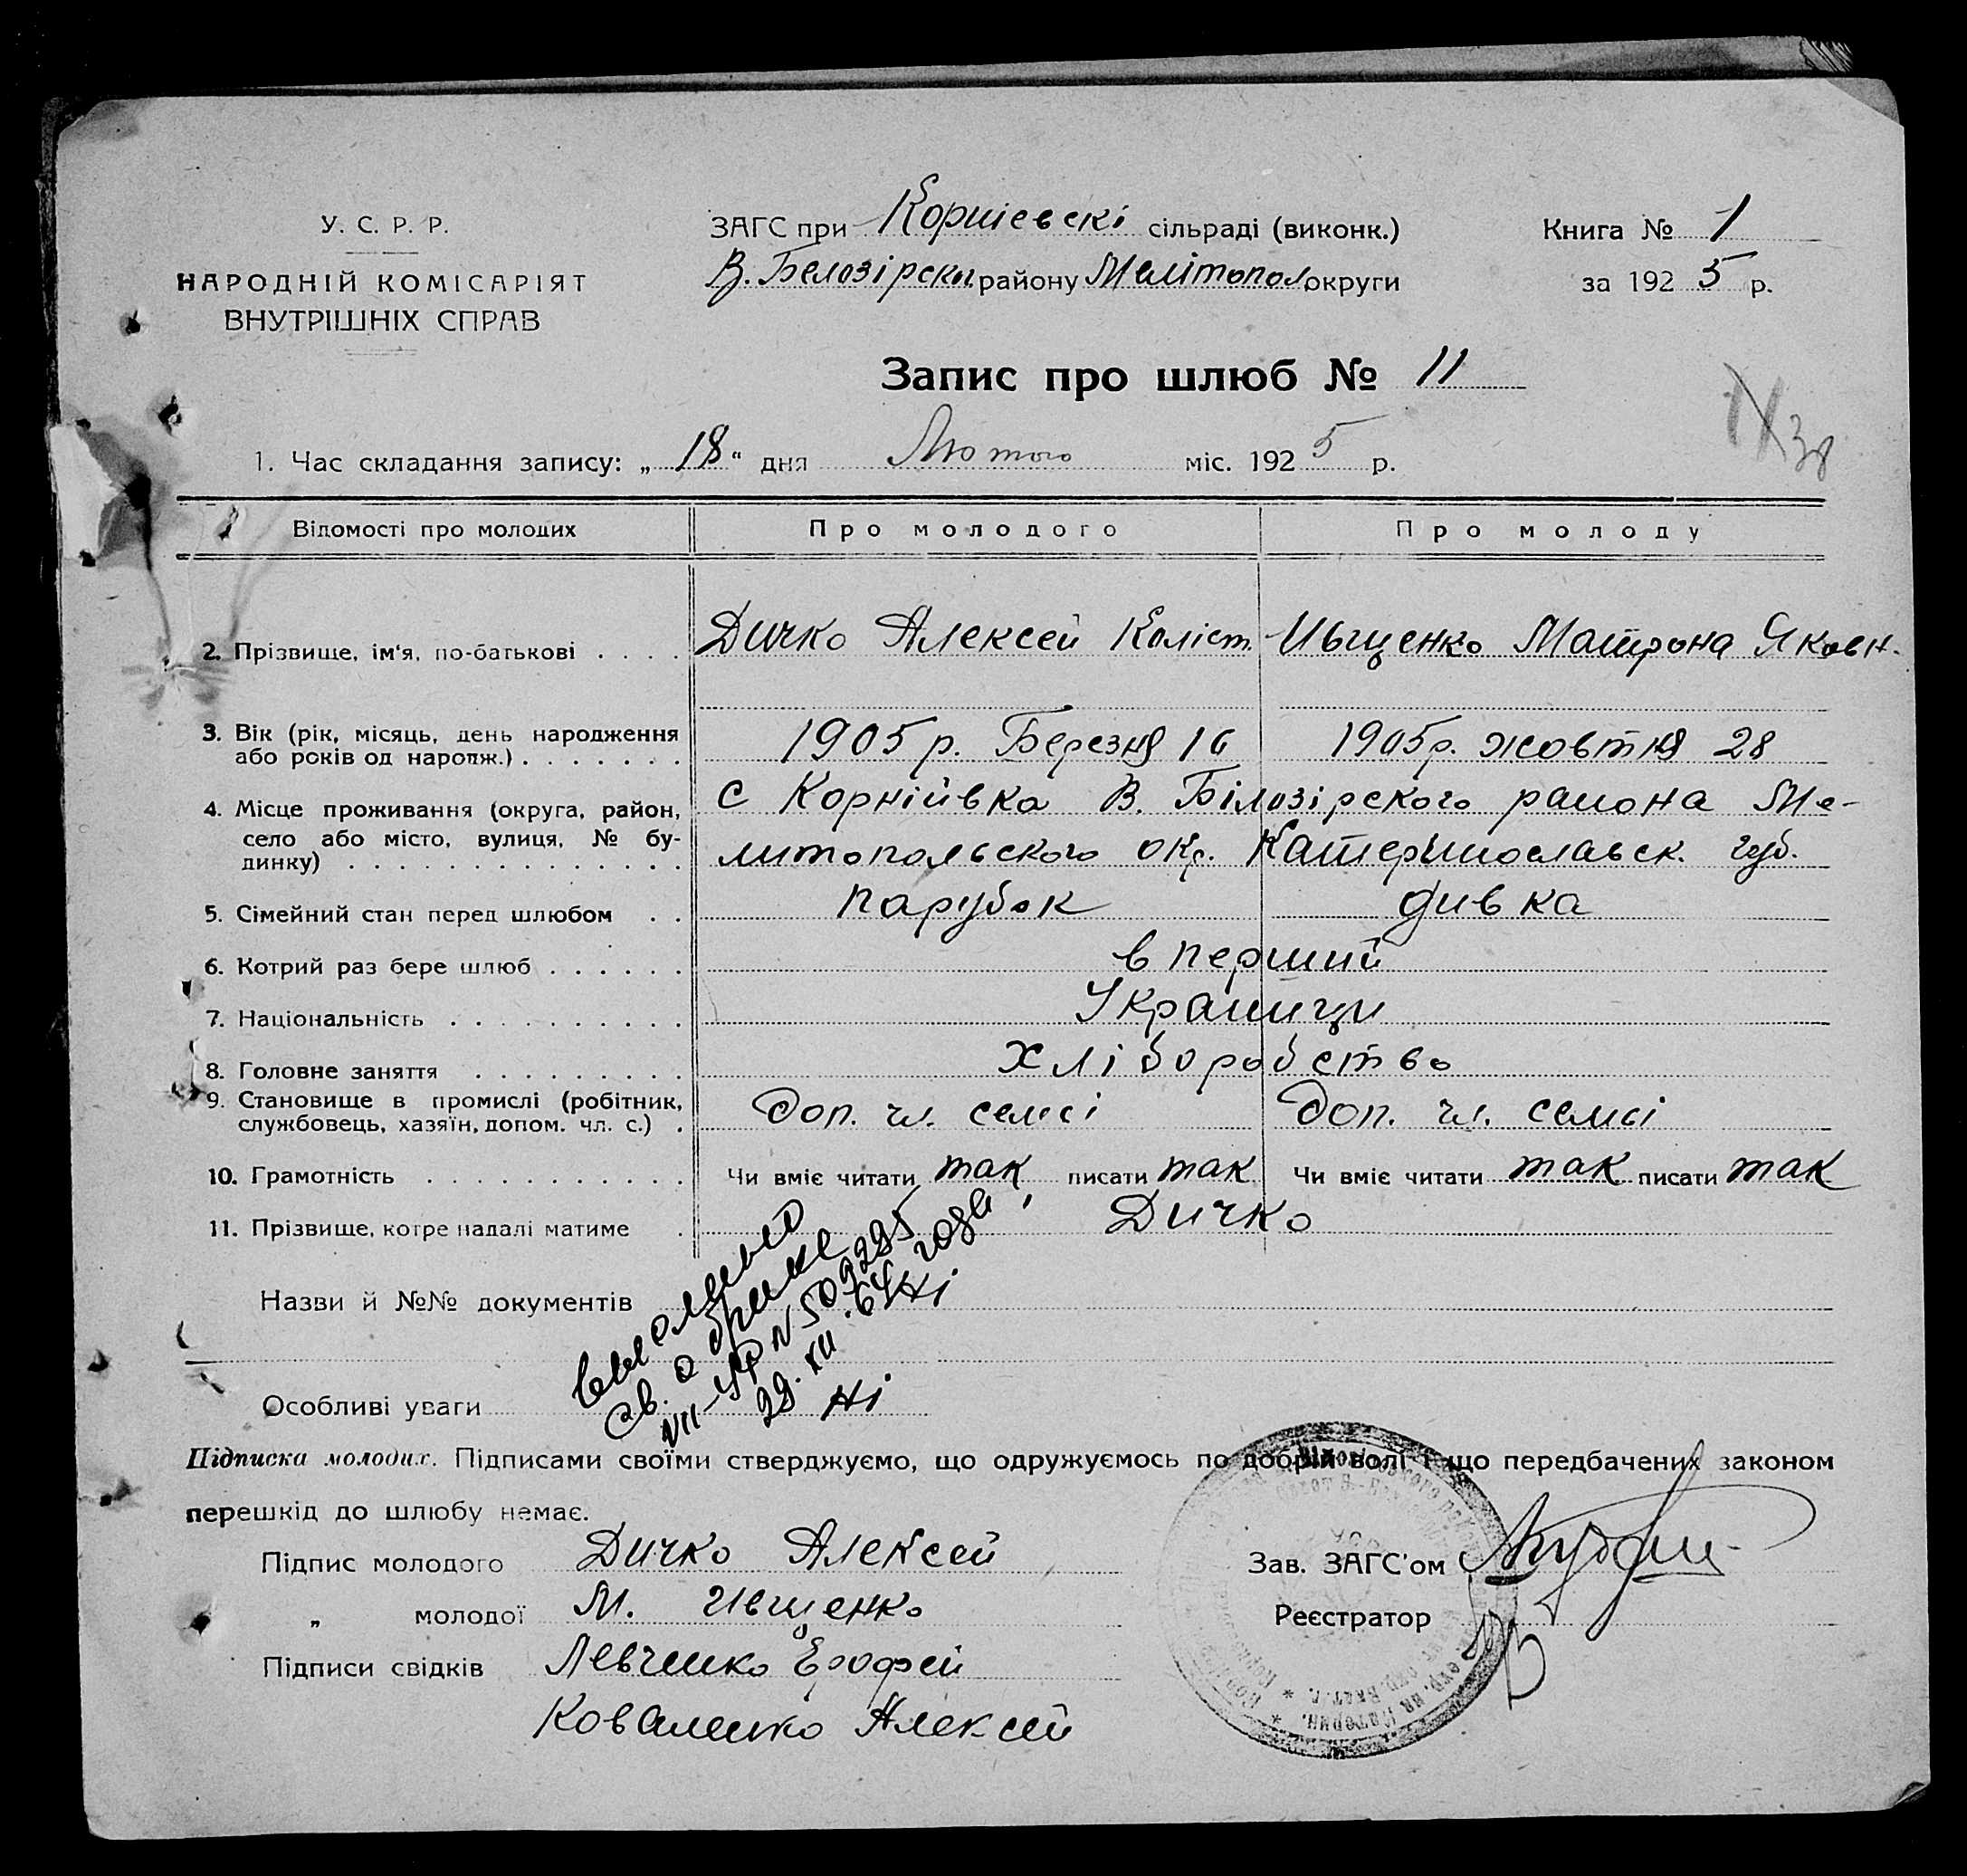 У. С. Р. Р.
НАРОДНІЙ КОМІСАРІЯТ
ВНУТРІШНІХ СПРАВ
ЗАГС при Корніевскі сільраді (виконк.)
В. Белозірског. району Мелітопол. округи
Книга № 1
за 1925 р.
Запис про шлюб № 11
1. Час складання запису: „18“ дня Лютого міс. 1925 р.
Відомості про молодих Про молодого Про молоду
2. Прізвище, ім'я, по-батькові . . . . Дичко Алексей Каліст. Ивщенко Матрона Яковн.
3. Вік (рік, місяць, день народження
або років од народж.) . . . . . . . 1905 р. Березня 16 1905 р. жовтня 28
4. Місце проживання (округа, район, с Корнійвка В. Білозірского района Ме-
село або місто, вулиця, № бу-
динку) . . . . . . . . . . . . . . литопольского окр. Катеринославск. губ.
5. Сімейний стан перед шлюбом . . парубок дивка
6. Котрий раз бере шлюб . . . . . . в перший
7. Національність . . . . . . . . . . Украинци
8. Головне заняття . . . . . . . . . хліборобство
9. Становище в промислі (робітник,
службовець, хазяїн, допом. чл. с.) . Доп. чл. семєі Доп. чл. семьі
10. Грамотність . . . . . . . . . . . Чи вміє читати так писати так Чи вміє читати так писати так
11. Прізвище, котре надалі матиме . Дичко
Назви й №№ документів
св. о браке
VII-УР N 509295
29. XII. 64 года
Ні
Ні
Особливі уваги
Підписка молодих. Підписами своїми стверджуємо, що одружуємось по добрій волі і що передбачених законом
перешкід до шлюбу немає.
Підпис молодого Дичко Алексей
„ молодої М. Ивщенко
Підписи свідків Левченко Ерофей
Коваленко Алексей
Зав. ЗАГС'ом
Реєстратор